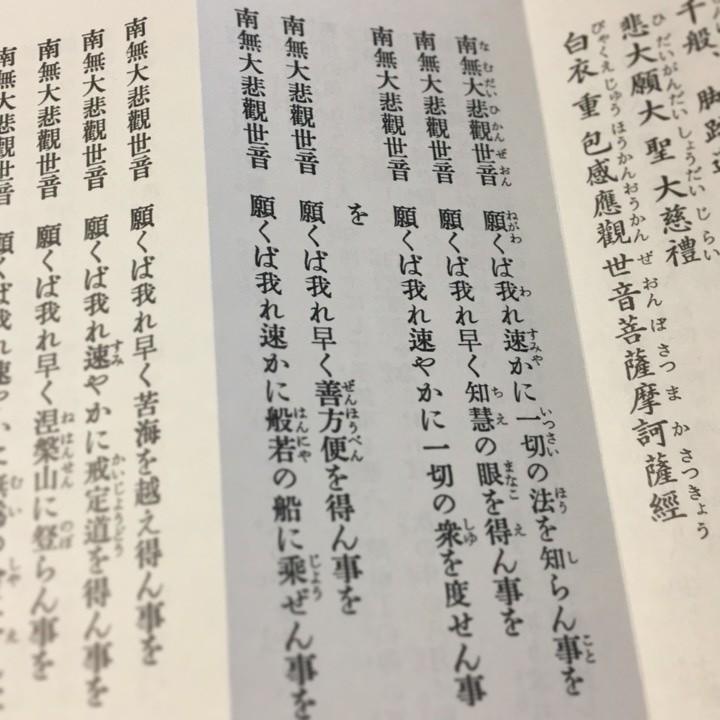 千般、脚踏
悲大願大聖大慈禮
白衣重包感應觀世音菩薩摩訶薩經
南無大悲觀世音 願くば我れ速かに一切の法を知らん事を
南無大悲觀世音 願くば我れ早く知慧の眼を得ん事を
南無大悲觀世音 願くば我れ速やかに一切の衆を度せん事
を
南無大悲觀世音 願くば我れ早く善方便を得ん事を
南無大悲觀世音 願くば我れ速かに般若の船に乘ぜん事を
南無大悲觀世音 願くば我れ早く苦海を越え得ん事を
南無大悲觀世音 願くば我れ速やかに戒定道を得ん事を
南無大悲觀世音 願くば我れ早く涅槃山に登らん事を
南無大悲觀世音 願くば我れ速